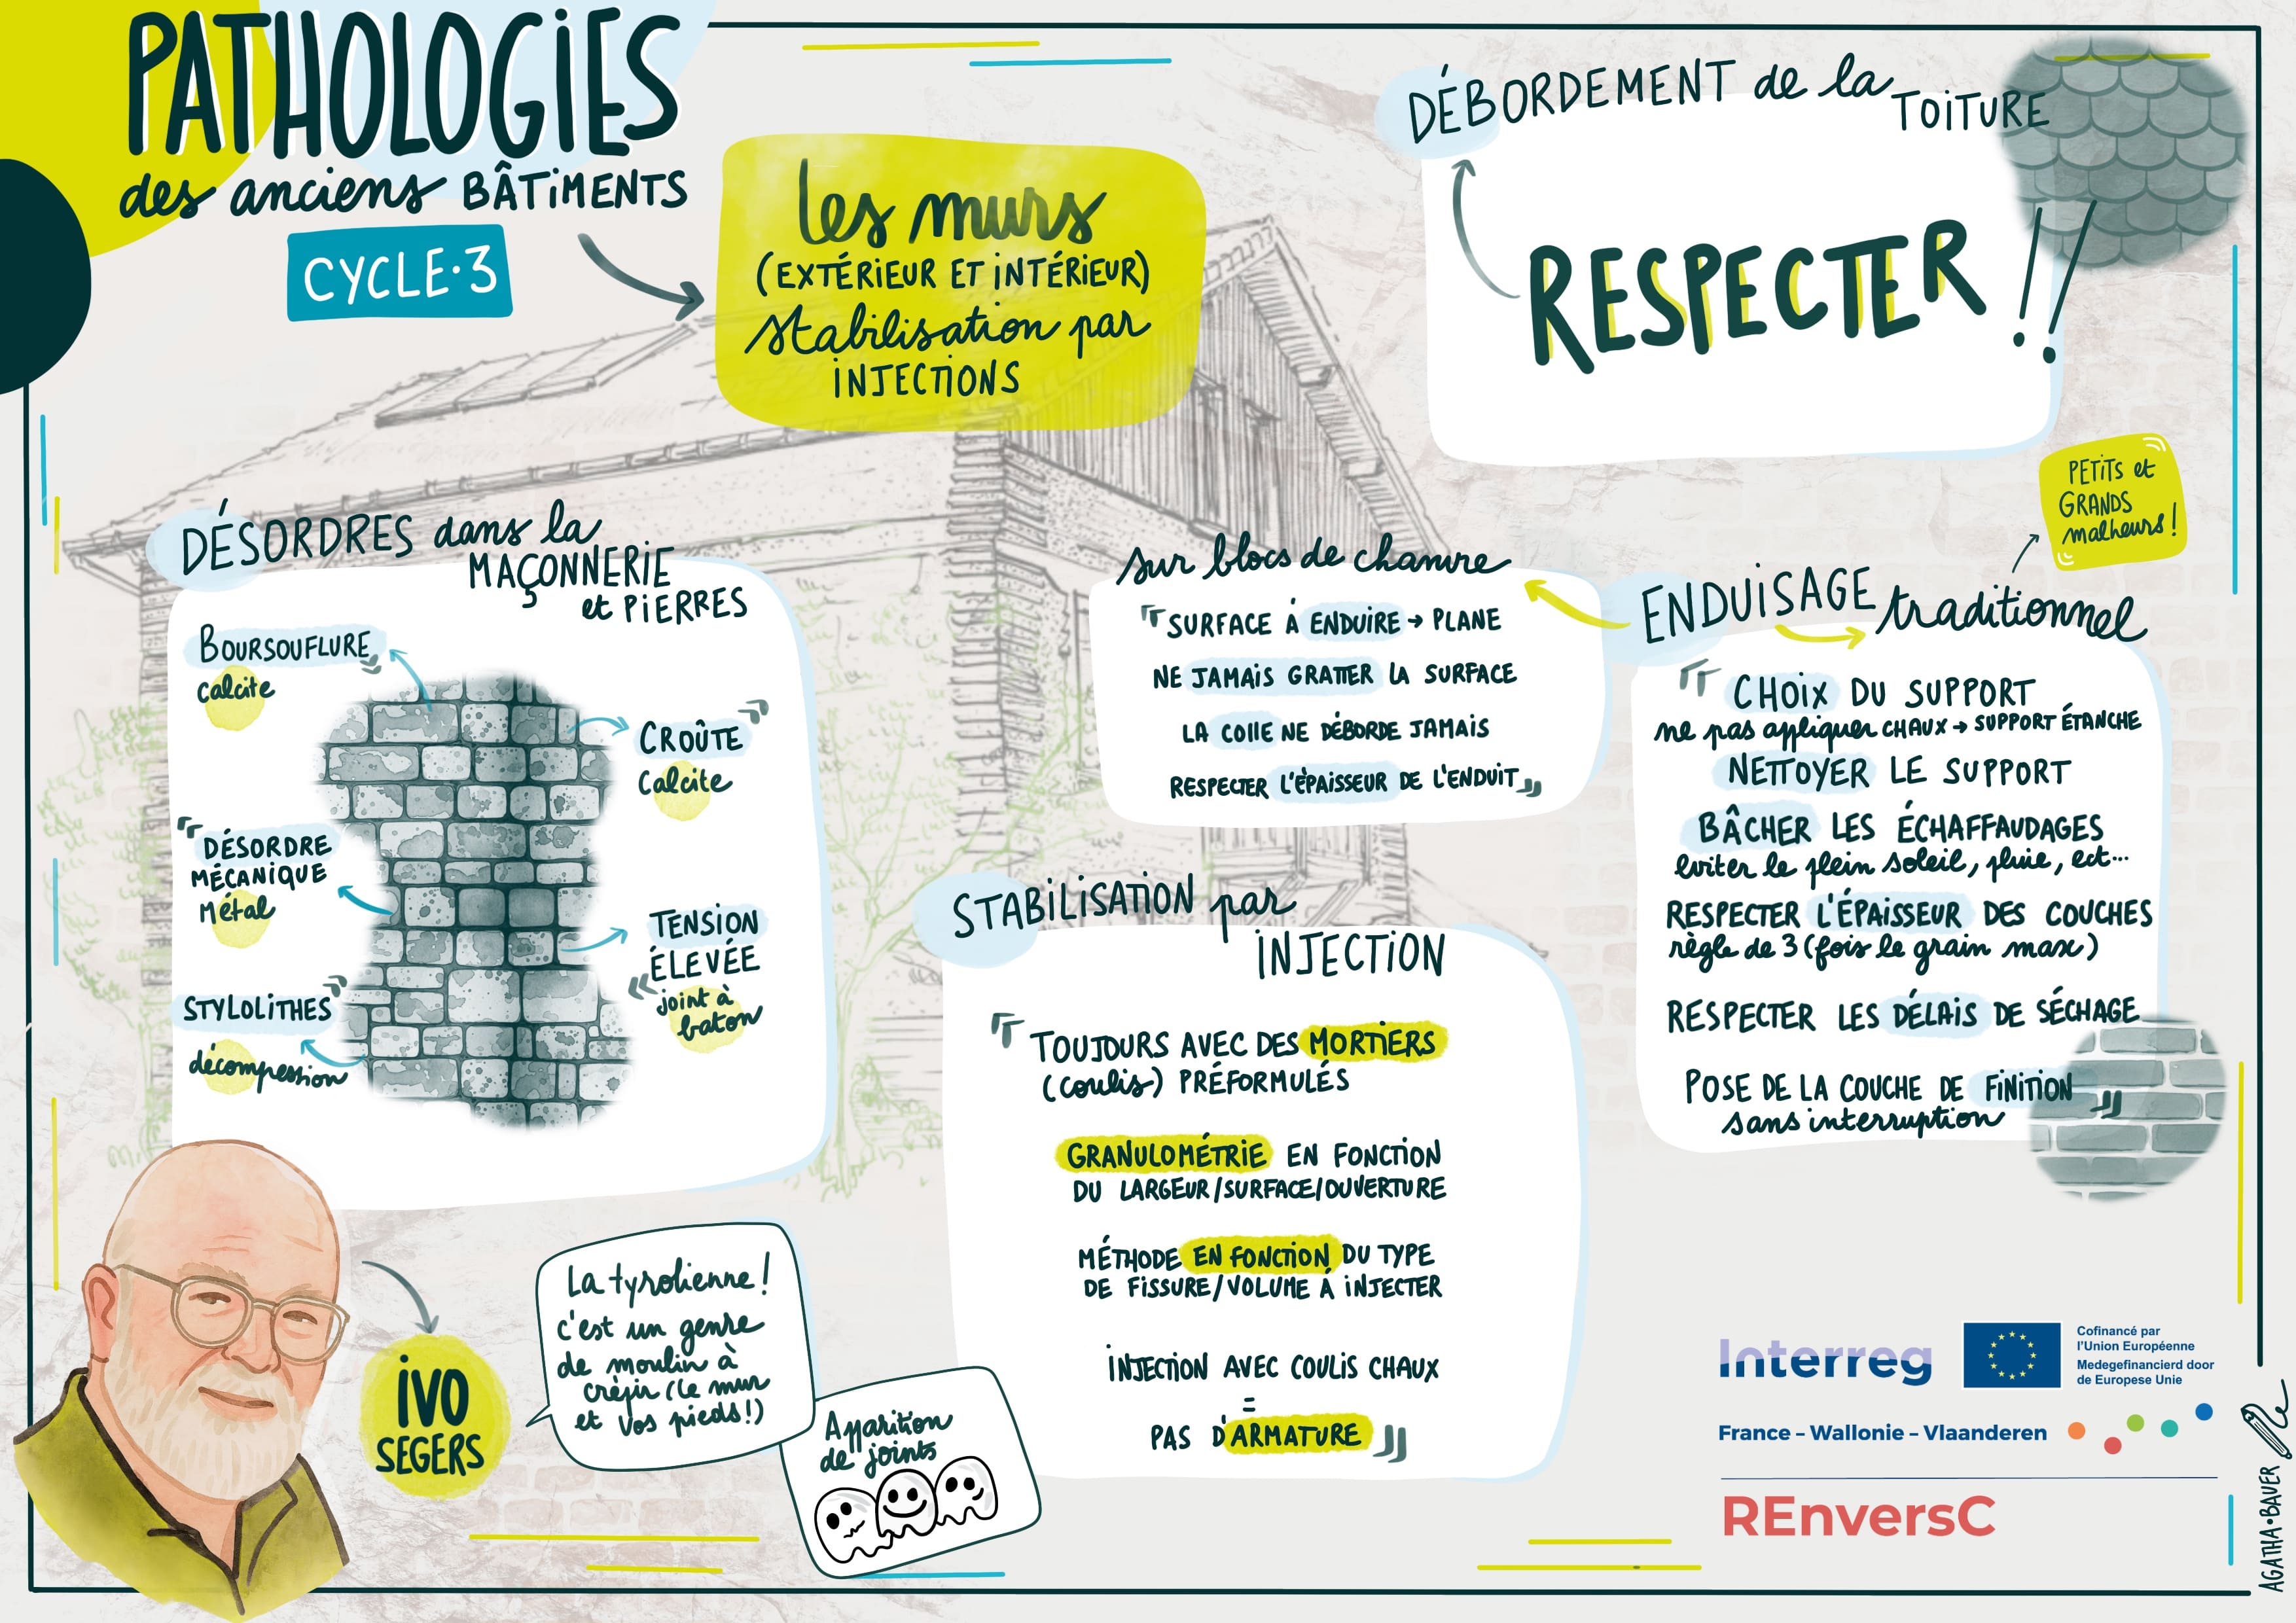 PATHOLOGiES
des anciens BÂTiMENTS
CYCLE·3
les murs
(EXTÉRiEUR ET iNTÉRiEUR)
stabilisation par
iNJECTiONS
DÉBORDEMENT de la
TOiTURE
RESPECTER !!
PETiTS et
GRANDS
malheurs !
DÉSORDRES dans la
MAÇONNERiE
et PiERRES
BOURSOUFLURE
calcite
CROÛTE
Calcite
DÉSORDRE
MÉCANiQUE
Métal
TENSiON
ÉLEVÉE
joint à
baton
STYLOLiTHES
décompession
sur blocs de chanvre
SURFACE À ENDUiRE → PLANE
NE JAMAiS GRATTER LA SURFACE
LA COllE NE DÉBORDE JAMAiS
RESPECTER L'ÉPAiSSEUR DE L'ENDUiT
ENDUiSAGE traditionnel
CHOiX DU SUPPORT
ne pas appliquer CHAUX → SUPPORT ÉTANCHE
NETTOYER LE SUPPORT
BÂCHER LES ÉCHAFFAUDAGES
eviter le plein soleil, pluie, ect...
RESPECTER L'ÉPAiSSEUR DES COUCHES
règle de 3 (fois le grain max)
RESPECTER LES DÉLAiS DE SÉCHAGE
POSE DE LA COUCHE DE FiNiTiON
sans interruption
STABiLiSATiON par
iNJECTiON
TOUJOURS AVEC DES MORTiERS
(coulis) PRÉFORMULÉS
GRANULOMÉTRiE EN FONCTiON
DU LARGEUR/SURFACE/OUVERTURE
MÉTHODE EN FONCTiON DU TYPE
DE FiSSURE/VOLUME À iNJECTER
iNJECTiON AVEC COULiS CHAUX
=
PAS D'ARMATURE
iVO
SEGERS
La tyrolienne !
c'est un genre
de moulin à
crépir (le mur
et vos pieds !)
Apparition
de joints
Interreg
Cofinancé par
l'Union Européenne
Medegefinancierd door
de Europese Unie
France – Wallonie – Vlaanderen
REnversC
AGATHA•BAUER